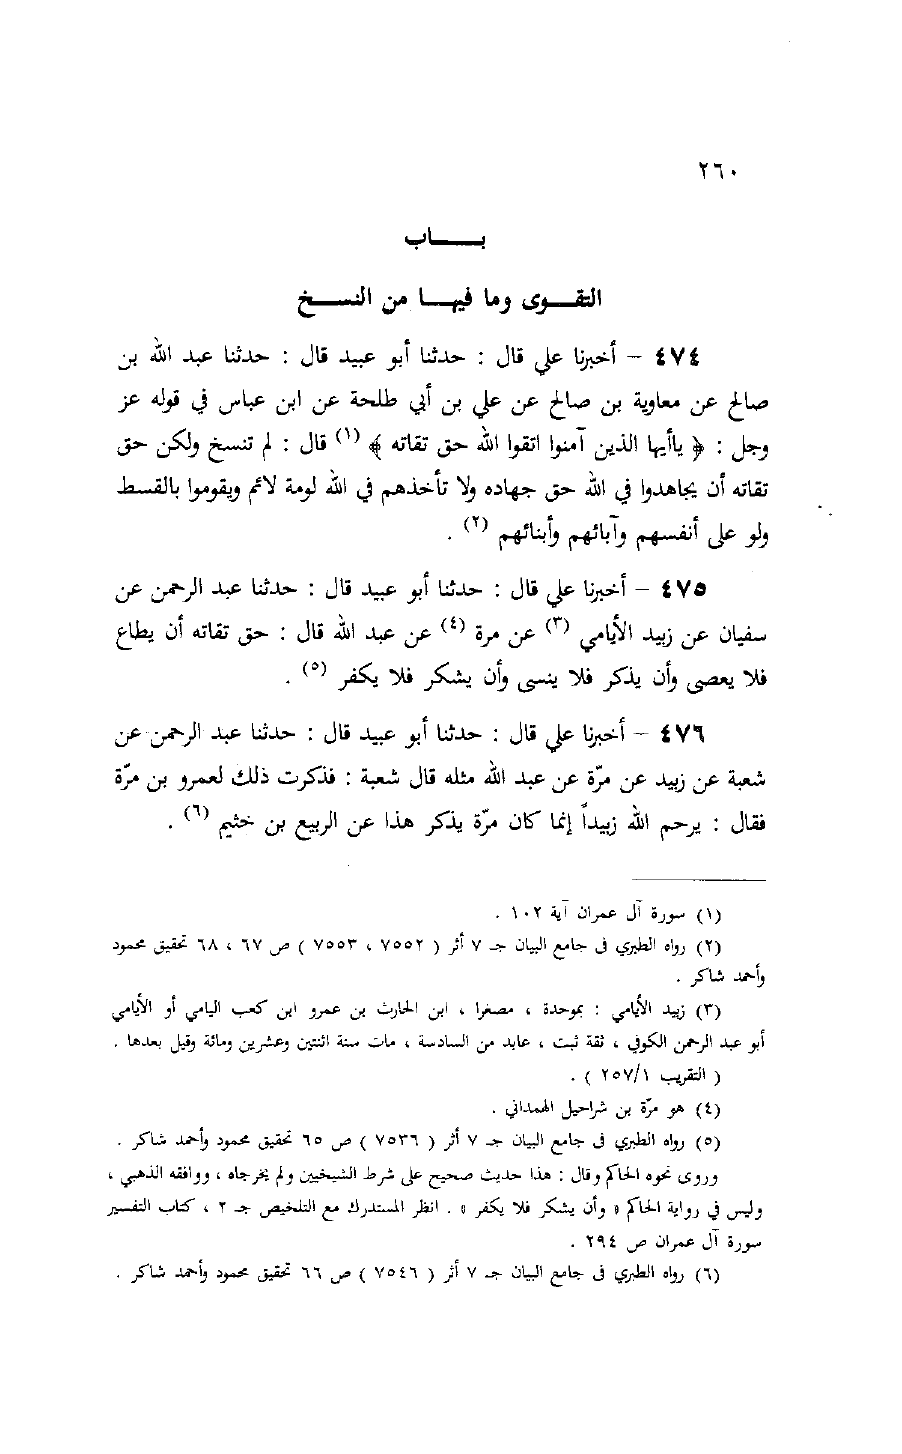 ٢٦٠
بـــاب
التقــوى وما فيهــا من النســخ
٤٧٤ – أخبرنا علي قال : حدثنا أبو عبيد قال : حدثنا عبد الله بن
صالح عن معاوية بن صالح عن علي بن أبي طلحة عن ابن عباس في قوله عز
وجل : ﴿ ياأيها الذين آمنوا اتقوا الله حق تقاته ﴾ (١) قال : لم تنسخ ولكن حق
تقاته أن يجاهدوا في الله حق جهاده ولا تأخذهم في الله لومة لائم ويقوموا بالقسط
ولو على أنفسهم وآبائهم وأبنائهم (٢) .
٤٧٥ – أخبرنا علي قال : حدثنا أبو عبيد قال : حدثنا عبد الرحمن عن
سفيان عن زبيد الأيامي (٣) عن مرة (٤) عن عبد الله قال : حق تقاته أن يطاع
فلا يعصى وأن يذكر فلا ينسى وأن يشكر فلا يكفر (٥) .
٤٧٦ – أخبرنا علي قال : حدثنا أبو عبيد قال : حدثنا عبد الرحمن عن
شعبة عن زبيد عن مرّة عن عبد الله مثله قال شعبة : فذكرت ذلك لعمرو بن مرّة
فقال : يرحم الله زبيداً إنما كان مرّة يذكر هذا عن الربيع بن خثيم (٦) .
(١) سورة آل عمران آية ١٠٢ .
(٢) رواه الطبري فى جامع البيان جـ ٧ أثر ( ٧٥٥٢ ، ٧٥٥٣ ) ص ٦٧ ، ٦٨ تحقيق محمود
وأحمد شاكر .
(٣) زبيد الأيامي : بموحدة ، مصغرا ، ابن الحارث بن عمرو ابن كعب اليامي أو الأيامي
أبو عبد الرحمن الكوفي ، ثقة ثبت ، عابد من السادسة ، مات سنة اثنتين وعشرين ومائة وقيل بعدها .
( التقريب ٢٥٧/١ ) .
(٤) هو مرّة بن شراحيل الهمداني .
(٥) رواه الطبري فى جامع البيان جـ ٧ أثر ( ٧٥٣٦ ) ص ٦٥ تحقيق محمود وأحمد شاكر .
وروى نحوه الحاكم وقال : هذا حديث صحيح على شرط الشيخين ولم يخرجاه ، ووافقه الذهبي ،
وليس في رواية الحاكم « وأن يشكر فلا يكفر » . انظر المستدرك مع التلخيص جـ ٢ ، كتاب التفسير
سورة آل عمران ص ٢٩٤ .
(٦) رواه الطبري فى جامع البيان جـ ٧ أثر ( ٧٥٤٦ ) ص ٦٦ تحقيق محمود وأحمد شاكر .